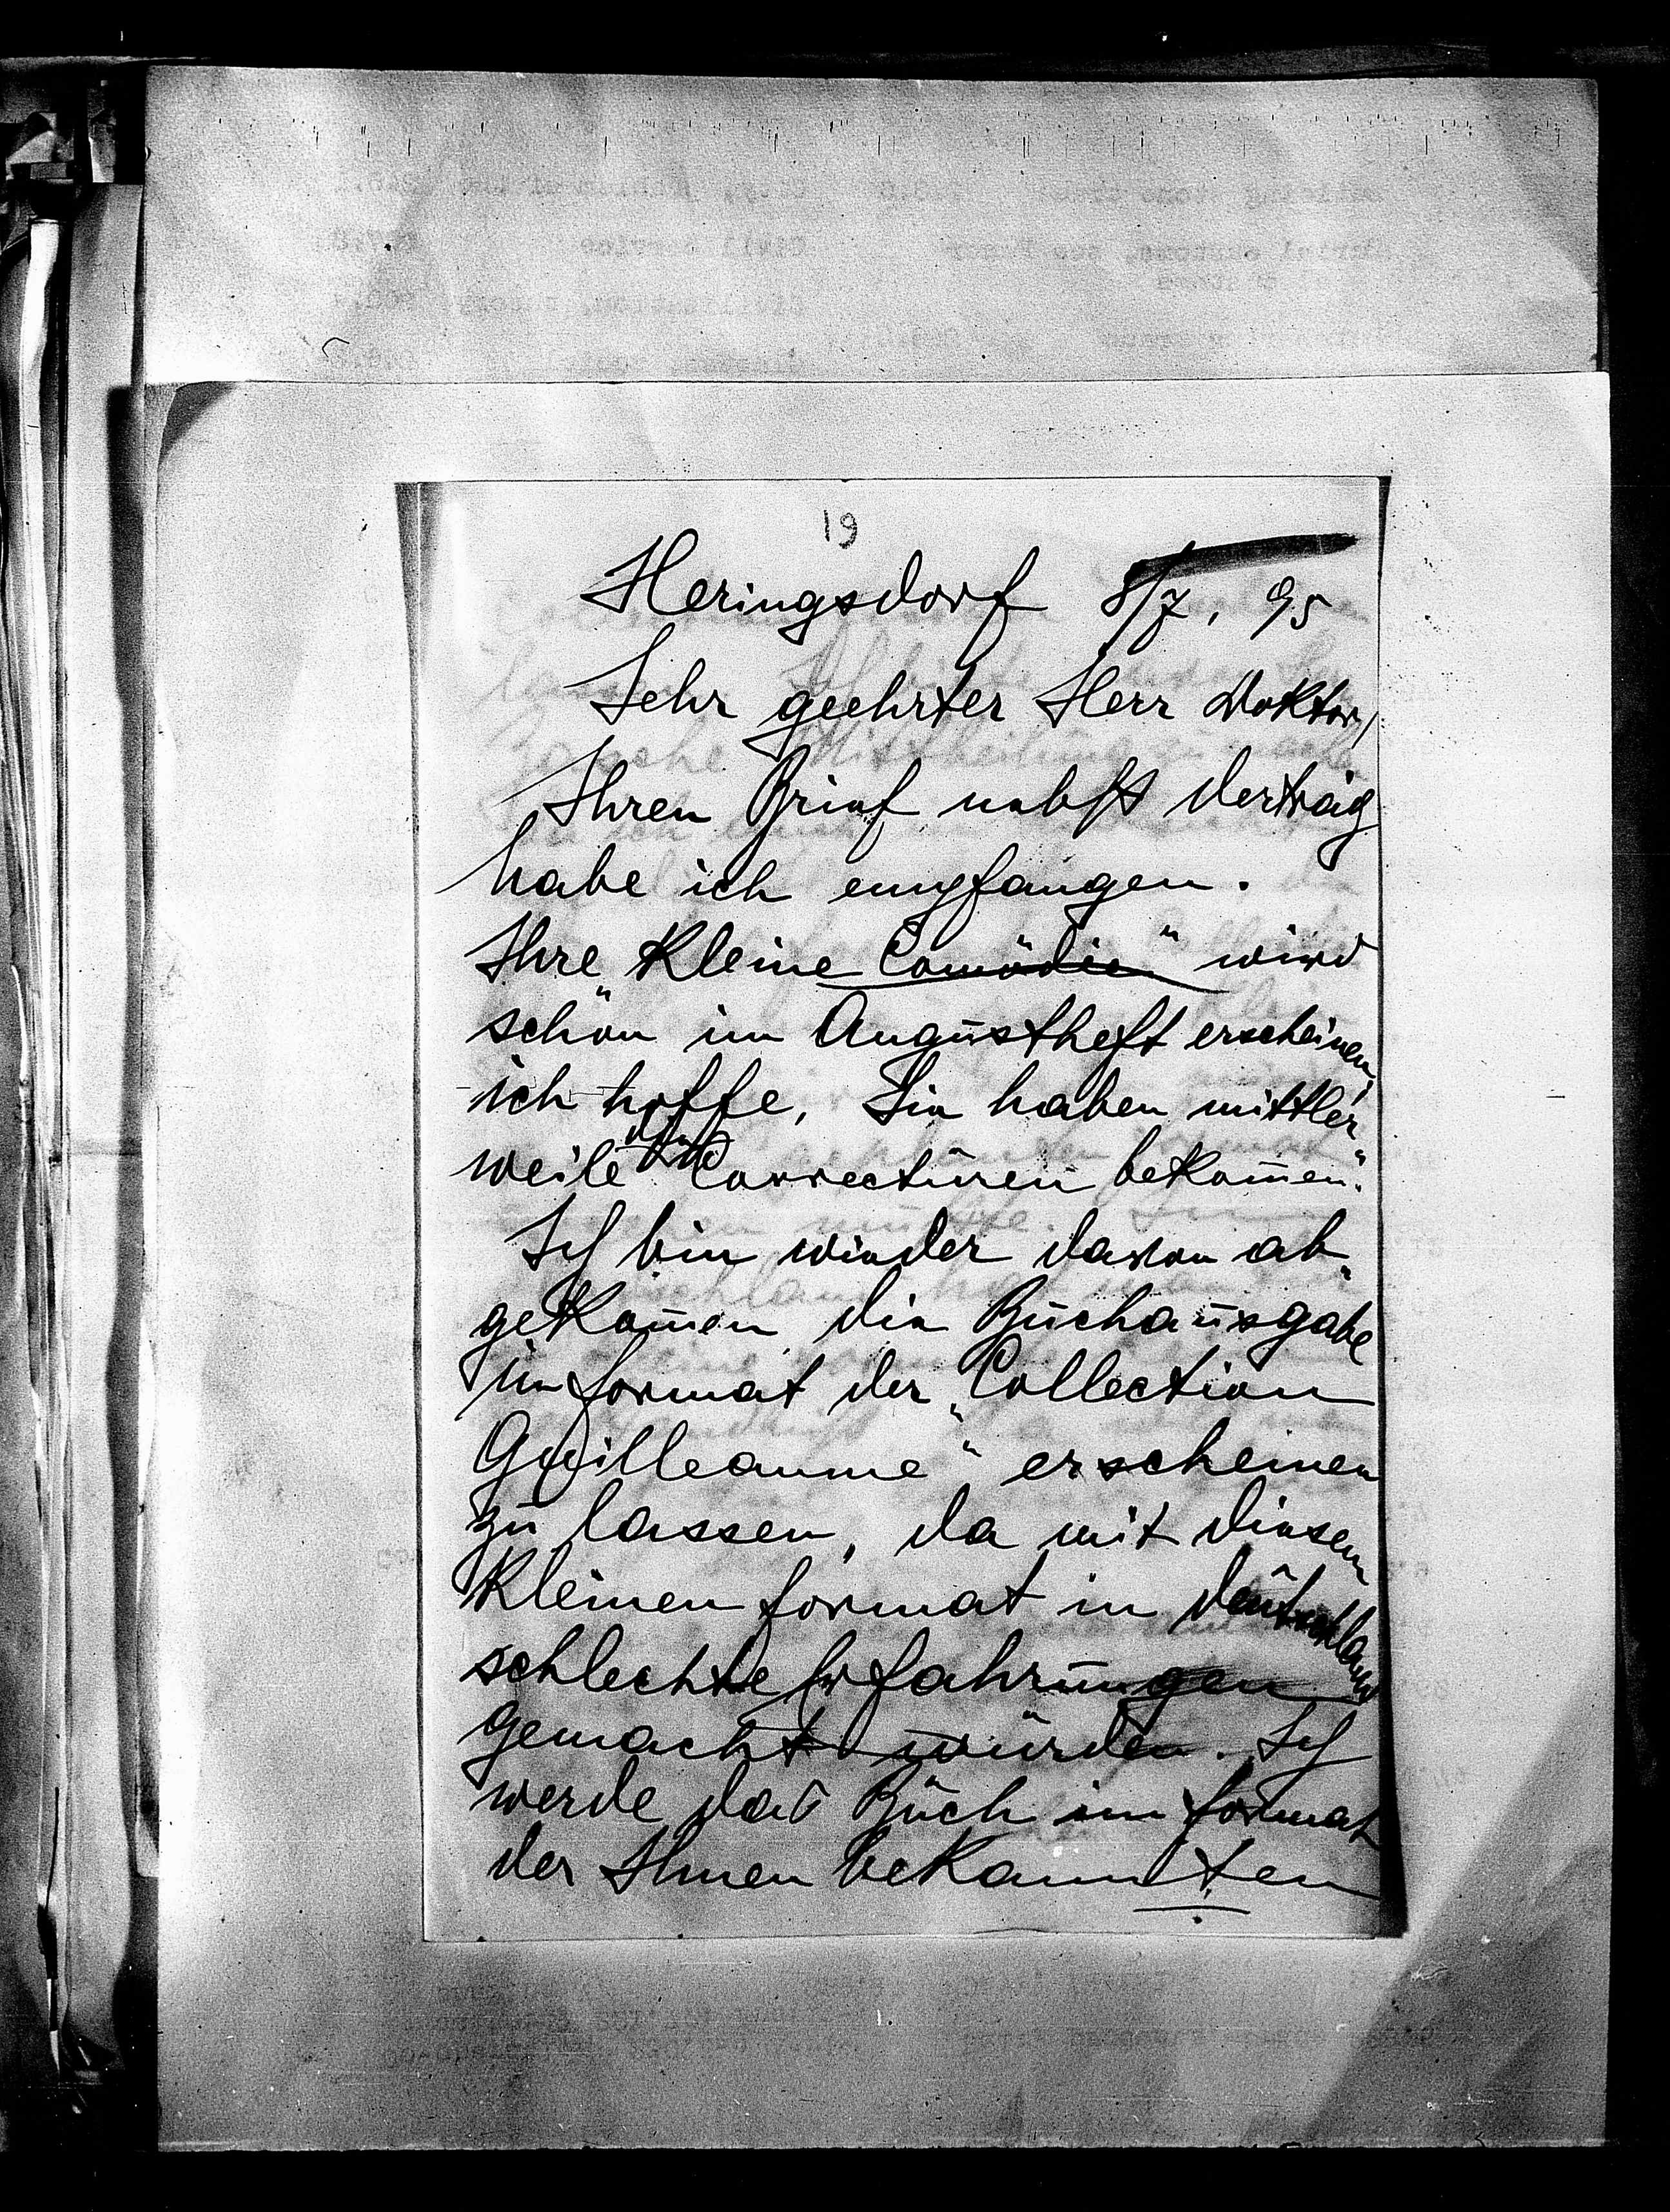 19
Heringsdorf 8/7. 95
Sehr geehrter Herr Doktor,
Ihren Brief nebst Vertrag
habe ich empfangen.
Ihre „Kleine Comödie" wird
schon im Augustheft erscheinen,
ich hoffe, Sie haben mittler-
weile Correcturen bekom̅en.
Ich bin wieder davon ab-
gekom̅en die Buchausgabe
im Format der „Collection
Guilleaume" erscheinen
zu lassen, da mit diesem
kleinen Format in Deutschland
schlechte Erfahrungen
gemacht wurden. Ich
werde das Buch im Format
der Ihnen bekannten